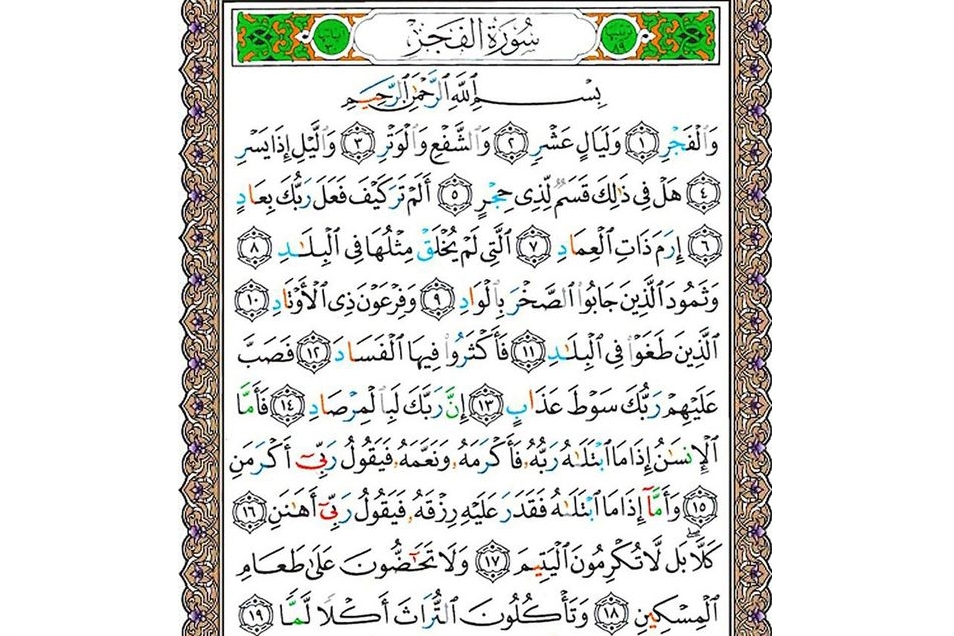 ترتيبها ٨٩ سُورَةُ الفَجْرِ آياتها ٣٠
بِسْمِ ٱللَّهِ ٱلرَّحْمَٰنِ ٱلرَّحِيمِ
وَٱلْفَجْرِ ١ وَلَيَالٍ عَشْرٍ ٢ وَٱلشَّفْعِ وَٱلْوَتْرِ ٣ وَٱلَّيْلِ إِذَا يَسْرِ
٤ هَلْ فِى ذَٰلِكَ قَسَمٌ لِّذِى حِجْرٍ ٥ أَلَمْ تَرَ كَيْفَ فَعَلَ رَبُّكَ بِعَادٍ
٦ إِرَمَ ذَاتِ ٱلْعِمَادِ ٧ ٱلَّتِى لَمْ يُخْلَقْ مِثْلُهَا فِى ٱلْبِلَٰدِ ٨
وَثَمُودَ ٱلَّذِينَ جَابُوا۟ ٱلصَّخْرَ بِٱلْوَادِ ٩ وَفِرْعَوْنَ ذِى ٱلْأَوْتَادِ ١٠
ٱلَّذِينَ طَغَوْا۟ فِى ٱلْبِلَٰدِ ١١ فَأَكْثَرُوا۟ فِيهَا ٱلْفَسَادَ ١٢ فَصَبَّ
عَلَيْهِمْ رَبُّكَ سَوْطَ عَذَابٍ ١٣ إِنَّ رَبَّكَ لَبِٱلْمِرْصَادِ ١٤ فَأَمَّا
ٱلْإِنسَٰنُ إِذَا مَا ٱبْتَلَىٰهُ رَبُّهُۥ فَأَكْرَمَهُۥ وَنَعَّمَهُۥ فَيَقُولُ رَبِّىٓ أَكْرَمَنِ
١٥ وَأَمَّآ إِذَا مَا ٱبْتَلَىٰهُ فَقَدَرَ عَلَيْهِ رِزْقَهُۥ فَيَقُولُ رَبِّىٓ أَهَٰنَنِ ١٦
كَلَّا ۖ بَل لَّا تُكْرِمُونَ ٱلْيَتِيمَ ١٧ وَلَا تَحَٰٓضُّونَ عَلَىٰ طَعَامِ
ٱلْمِسْكِينِ ١٨ وَتَأْكُلُونَ ٱلتُّرَاثَ أَكْلًا لَّمًّا ١٩